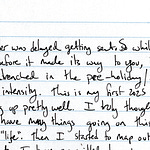 er was delayed getting sent. So while
before it made its way to you,
benched in the pre-holiday/
intensity. This is my first 2025
g up pretty well. I truly though
have many things going on this
"life". Then I started to map out